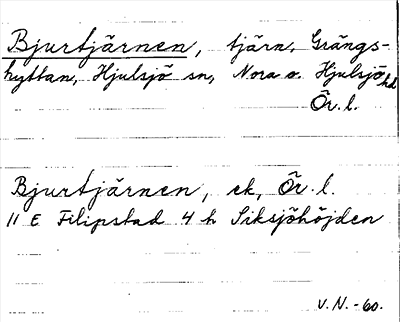 Bjurtjärnen, tjärn, Grängs-
hyttan, Hjulsjö sn, Nora o. Hjulsjö hd
Ör. l.
Bjurtjärnen, ek, Ör. l.
11 E Filipstad 4 h Siksjöhöjden
V. N. -60.